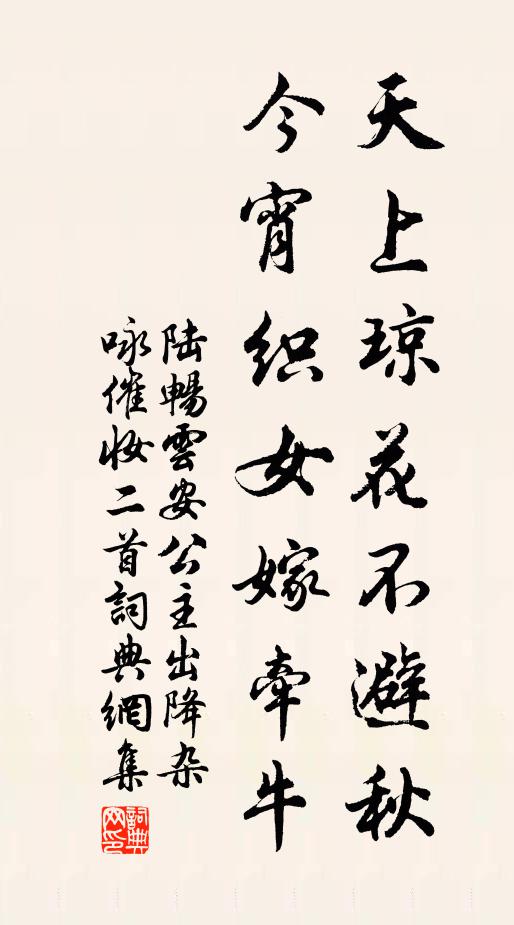 天上琼花不避秋
今宵织女嫁牵牛
陆畅云安公主出降杂
咏催妆二首词典网集
词典网印